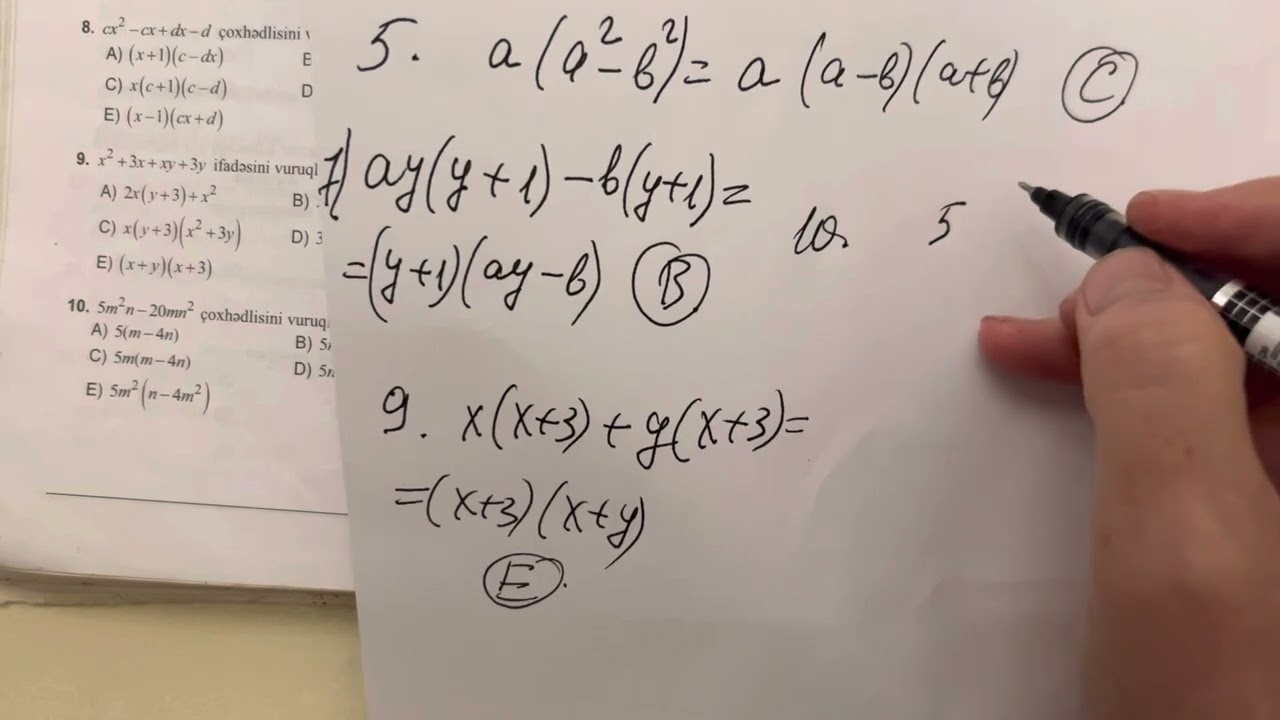 8. cx² – cx + dx – d çoxhədlisini
A) (x+1)(c–dx)
C) x(c+1)(c–d)
D
E) (x–1)(cx+d)
9. x² + 3x + xy + 3y ifadəsini vuruql
A) 2x(y+3)+x²
B)
C) x(y+3)(x²+3y)
D) 3
E) (x+y)(x+3)
10. 5m²n – 20mn² çoxhədlisini vuruq
A) 5(m–4n)
B) 5
C) 5m(m–4n)
D) 5
E) 5m²(n–4m²)
5. a(a²–b²)= a(a–b)(a+b) C
7) ay(y+1)–b(y+1)=
=(y+1)(ay–b) B
10. 5
9. x(x+3)+y(x+3)=
=(x+3)(x+y)
E.